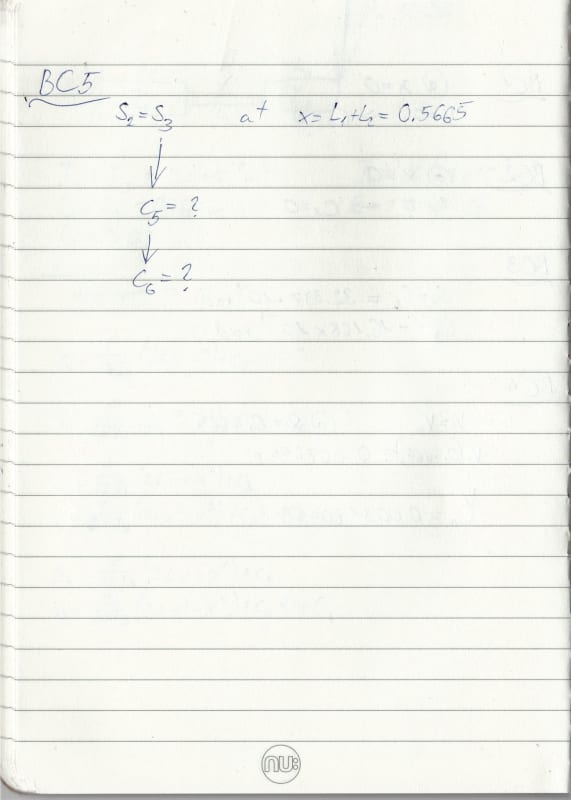 BC5
S₂ = S₃ at x = L₁+L₂ = 0.5665
C₅ = ?
C₆ = ?
nu: